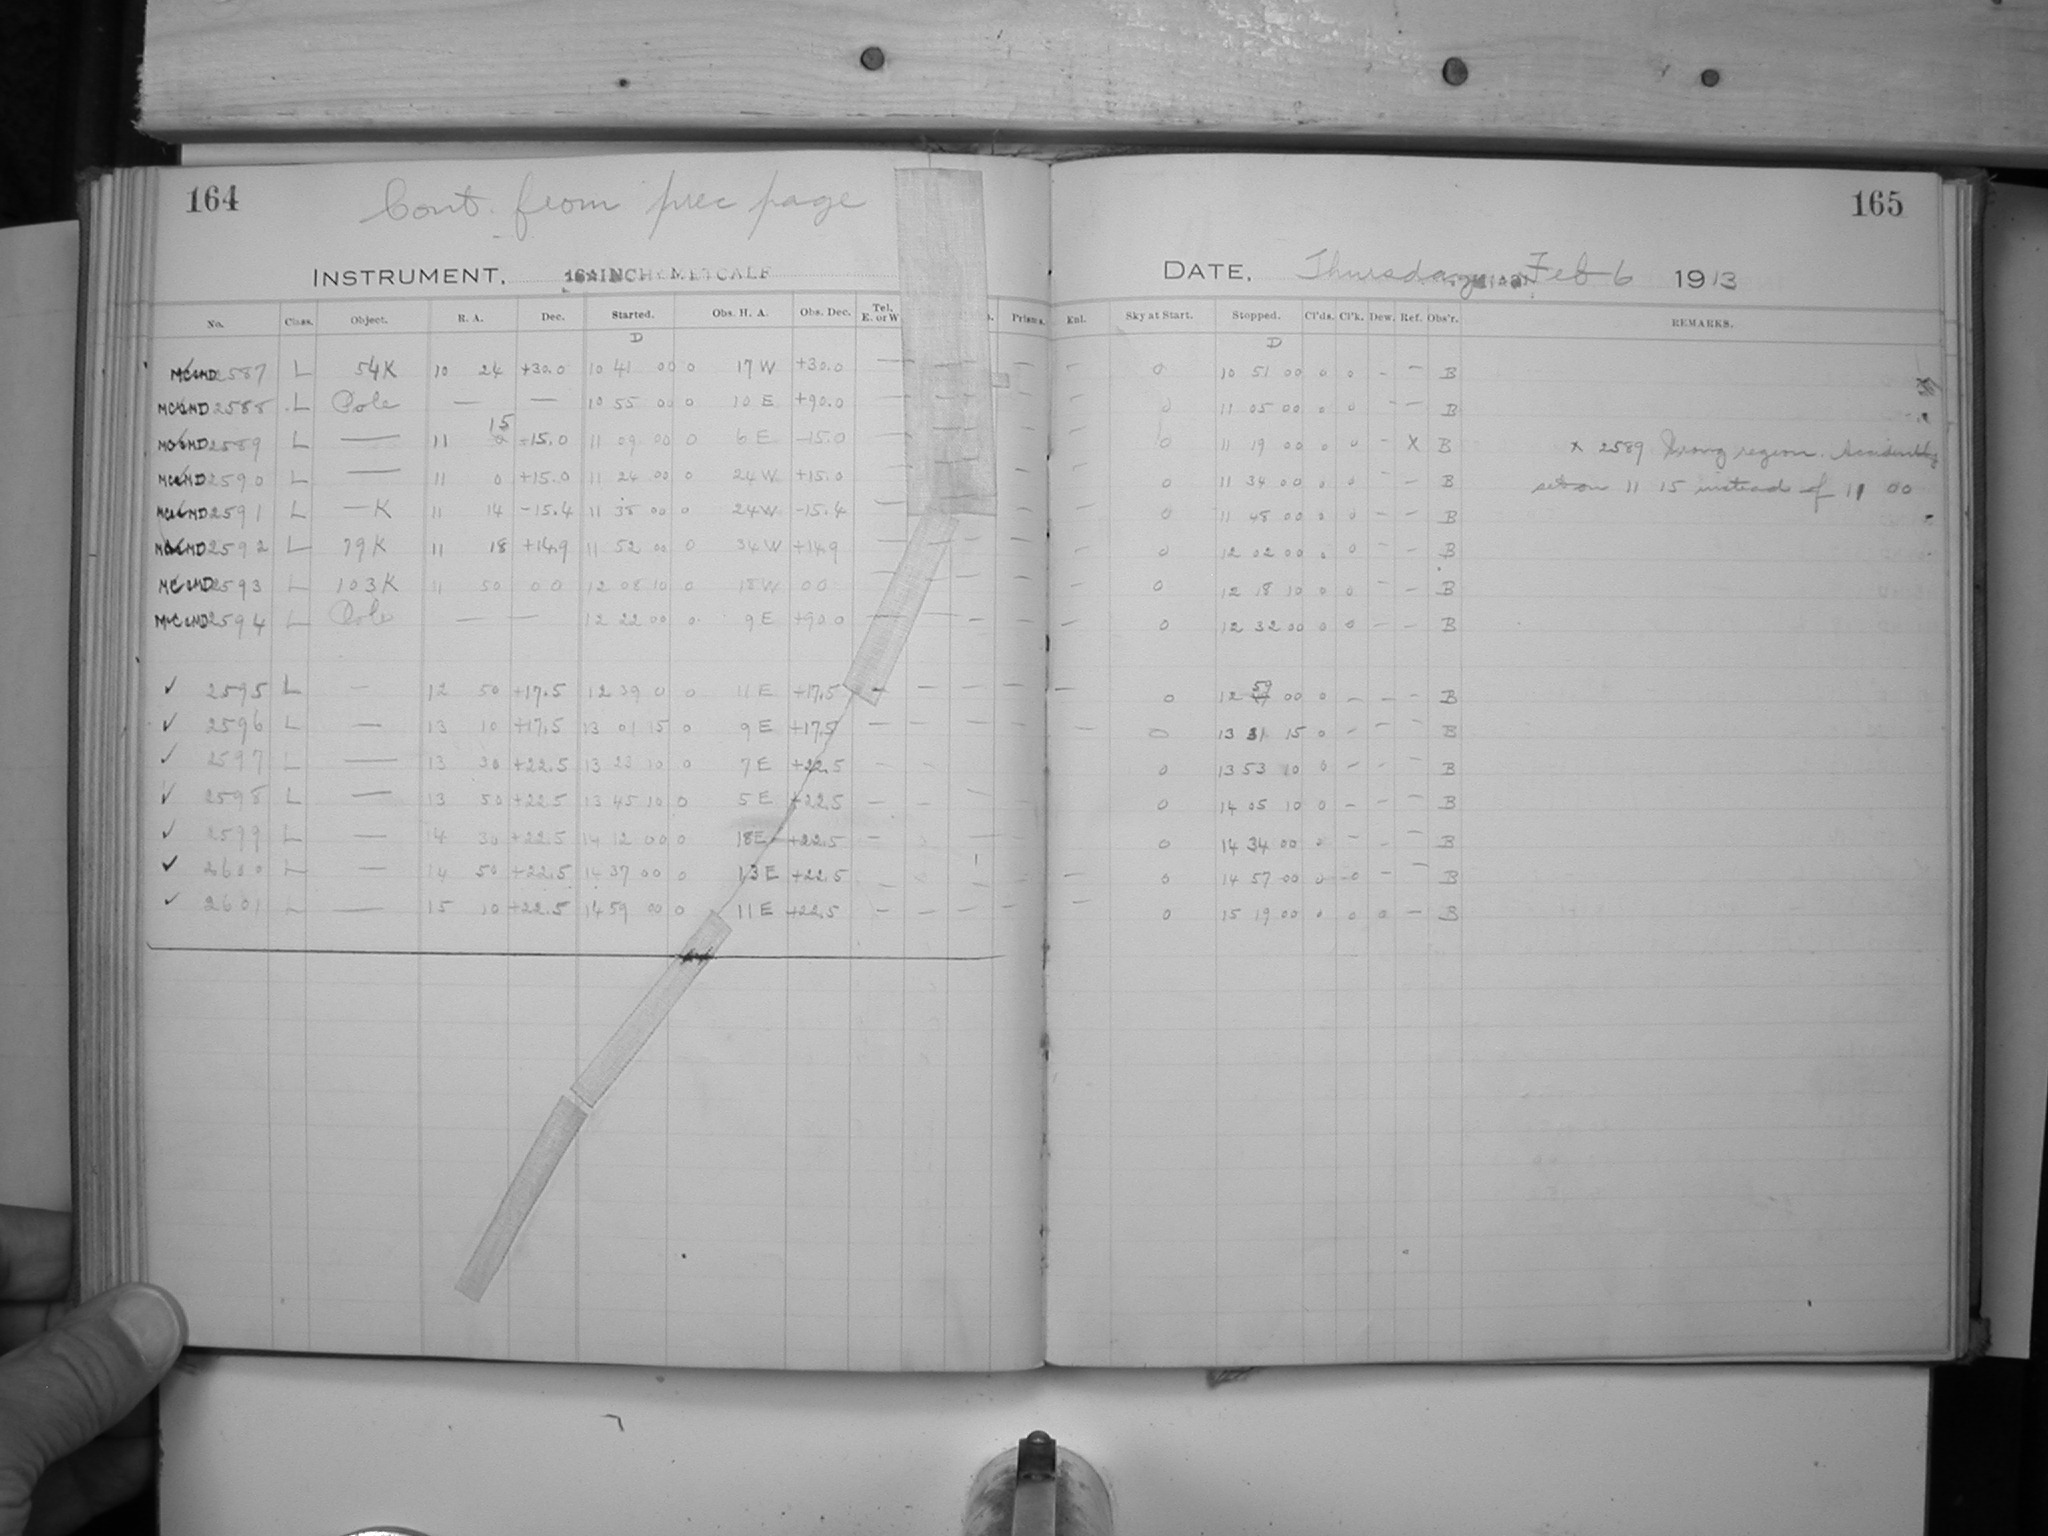 164
Cont. from prec page
INSTRUMENT, 16 INCH METCALF
No. Class. Object. R. A. Dec. Started. Obs. H. A. Obs. Dec. Tel. E. or W. Prisms.
D
2587 L 54K 10 24 +30.0 10 41 00 0 17 W +30.0 — — — —
2588 L Pole — — 10 55 00 0 10 E +90.0 — — — —
2589 L — 11 15 -15.0 11 09 00 0 6 E -15.0 — —
2590 L — 11 0 +15.0 11 24 00 0 24 W +15.0 — —
2591 L — K 11 14 -15.4 11 38 00 0 24 W -15.4 — —
2592 L 79K 11 18 +14.9 11 52 00 0 34 W +14.9 — — — —
2593 L 103K 11 50 00 12 08 10 0 18 W 00 — — — —
2594 L Pole — — 12 22 00 0 9 E +90.0 — — — —
2595 L — 12 50 +17.5 12 39 0 0 11 E +17.5 — — — —
2596 L — 13 10 +17.5 13 01 15 0 9 E +17.5 — — — —
2597 L — 13 30 +22.5 13 23 10 0 7 E +22.5 — —
2598 L — 13 50 +22.5 13 45 10 0 5 E +22.5 — — — —
2599 L — 14 30 +22.5 14 12 00 0 18 E +22.5 — — —
2600 L — 14 50 +22.5 14 37 00 0 13 E +22.5 — — —
2601 L — 15 10 +22.5 14 59 00 0 11 E +22.5 — — — —
165
DATE, Thursday Feb 6 1913
Enl. Sky at Start. Stopped. Cl'ds. Cl'k. Dew. Ref. Obs'r. REMARKS.
D
— 0 10 51 00 0 0 - — B
— 0 11 05 00 0 0 — — B
— 0 11 19 00 0 0 - X B x 2589 Wrong region. Accidentally
— 0 11 34 00 0 0 — B set on 11 15 instead of 11 00
— 0 11 48 00 0 0 — — B
— 0 12 02 00 0 0 — — B
— 0 12 18 10 0 0 — — B
— 0 12 32 00 0 0 — — B
— 0 12 59 00 0 — — — B
— 0 13 31 15 0 — — — B
0 13 53 10 0 — — — B
0 14 05 10 0 — — — B
0 14 34 00 0 — - — B
— 0 14 57 00 0 -0 — — B
— 0 15 19 00 0 0 0 — B